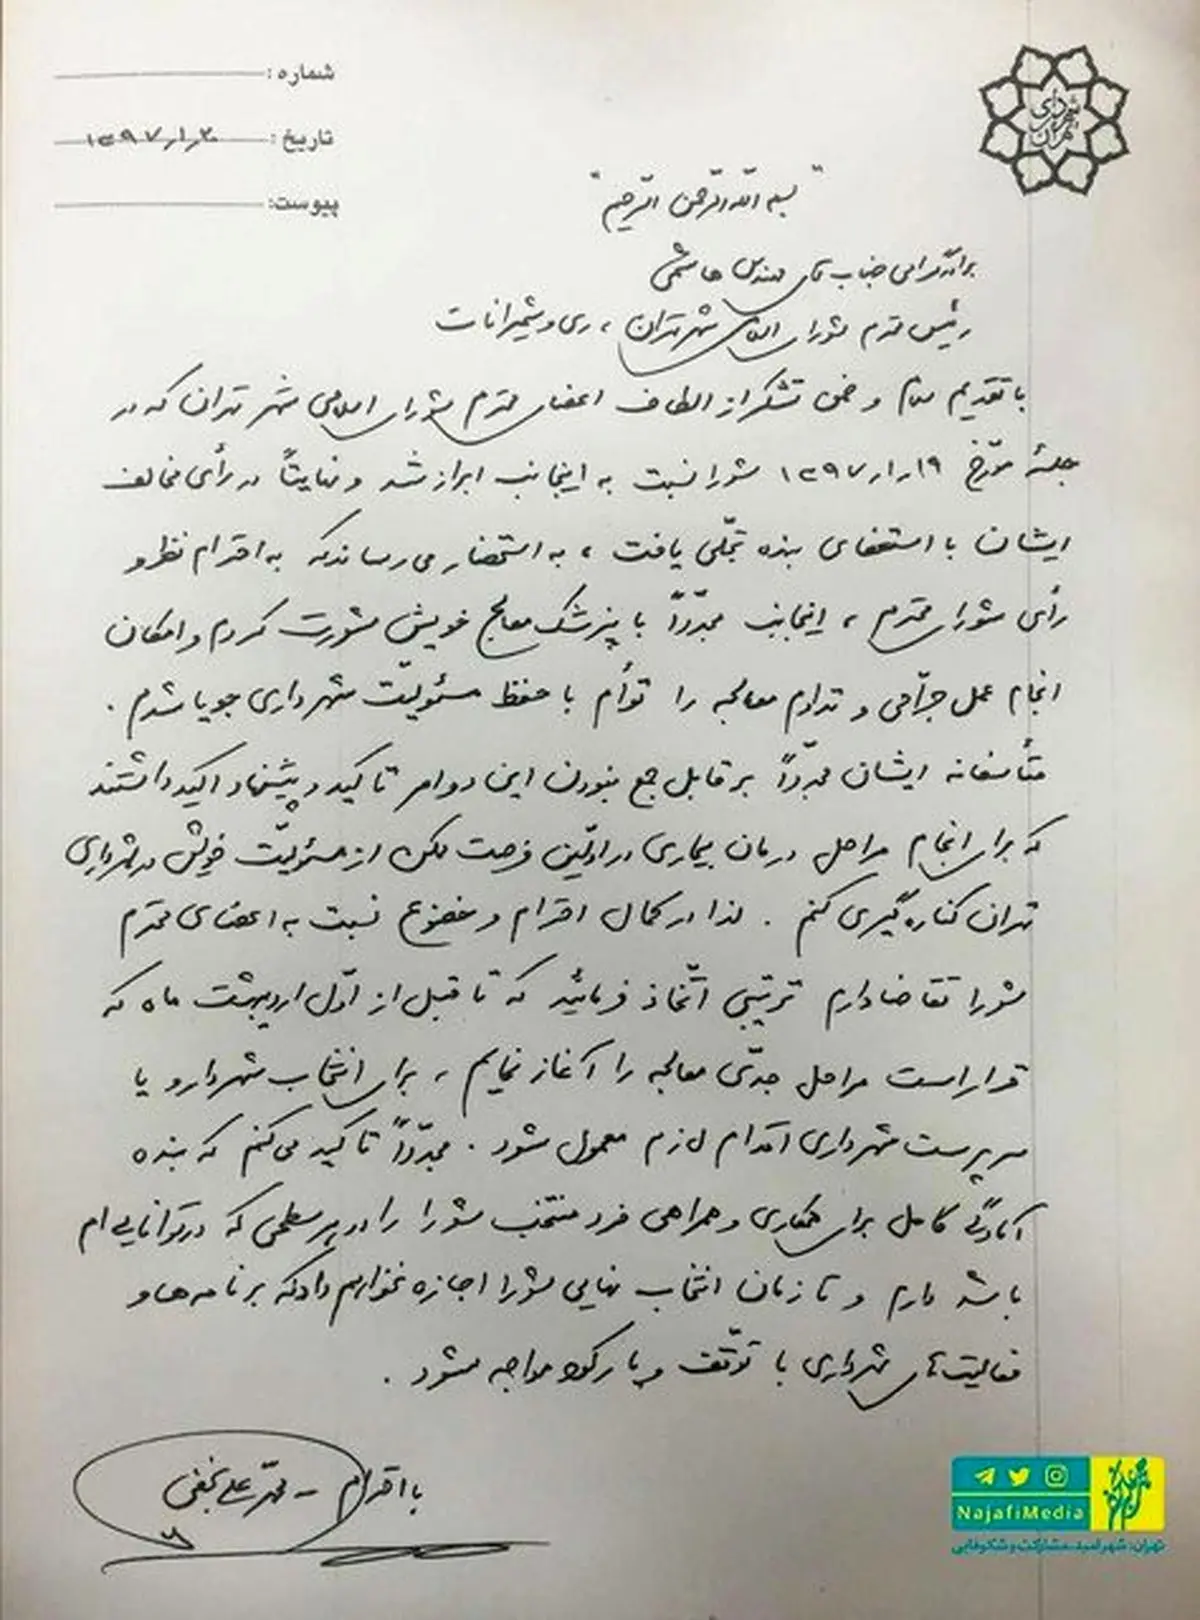 شماره :
تاریخ : ۱۳۹۷/۱/۲۰
پیوست:
شهرداری تهران
"بسم الله الرحمن الرحیم"
برادر گرامی جناب آقای مهندس هاشمی
رئیس محترم شورای اسلامی شهر تهران، ری و شمیرانات
با تقدیم سلام و ضمن تشکر از الطاف اعضای محترم شورای اسلامی شهر تهران که در
جلسهٔ مورّخ ۱۳۹۷/۱/۱۹ شورا نسبت به اینجانب ابراز شد و نهایتاً در رأی مخالف
ایشان با استعفای بنده تجلّی یافت، به استحضار می‌رساند که به احترام نظر و
رأی شورای محترم، اینجانب مجدّداً با پزشک معالج خویش مشورت کردم و امکان
انجام عمل جرّاحی و تداوم معالجه را توأم با حفظ مسئولیّت شهرداری جویا شدم.
متأسفانه ایشان مجدّداً بر قابل جمع نبودن این دو امر تاکید و پیشنهاد اکید داشتند
که برای انجام مراحل درمان بیماری در اوّلین فرصت ممکن از مسئولیّت خویش در شهرداری
تهران کناره‌گیری کنم. لذا در کمال احترام و خضوع نسبت به اعضای محترم
شورا تقاضا دارم ترتیبی اتّخاذ فرمائید که تا قبل از اوّل اردیبهشت ماه که
قرار است مراحل جدّی معالجه را آغاز نمایم، برای انتخاب شهردار و یا
سرپرست شهرداری اقدام لازم معمول شود. مجدّداً تاکید می‌کنم که بنده
آمادگی کامل برای همکاری و همراهی فرد منتخب شورا را در هر سطحی که در توانایی‌ام
باشد دارم و تا زمان انتخاب نهایی شورا اجازه نخواهم داد که برنامه‌ها و
فعالیت‌های شهرداری با توّقف و یا رکود مواجه شود.
با احترام – محمّد علی نجفی
NajafiMedia
تهران؛ شهر امید، مشارکت و شکوفایی